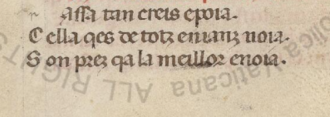 Assa tan creis epoia.
C ella qes de totz enianz uoia.
S on prez qa la meillor enoia.